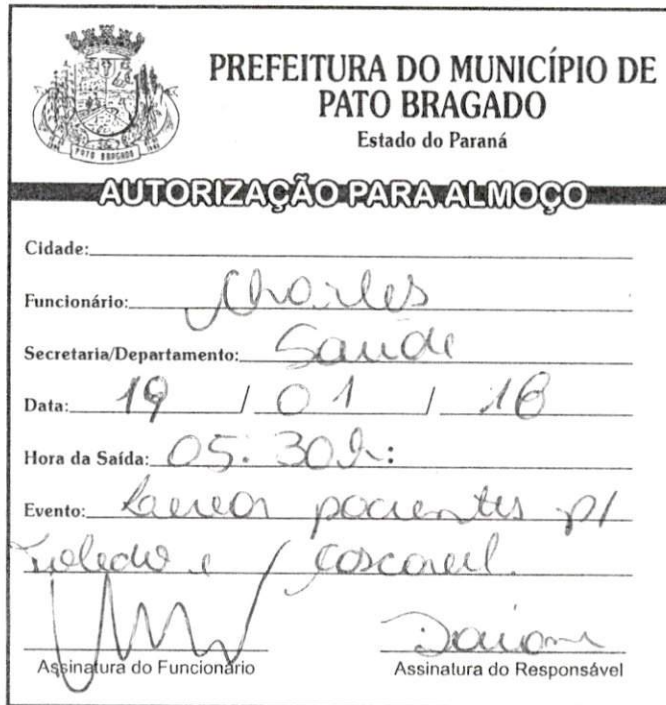 PREFEITURA DO MUNICÍPIO DE
PATO BRAGADO
Estado do Paraná
PATO BRAGADO
AUTORIZAÇÃO PARA ALMOÇO
Cidade:
Funcionário: Charles
Secretaria/Departamento: Saúde
Data: 19 / 01 / 18
Hora da Saída: 05:30h:
Evento: Levar pacientes p/
Toledo e Cascavel.
Assinatura do Funcionário
Assinatura do Responsável